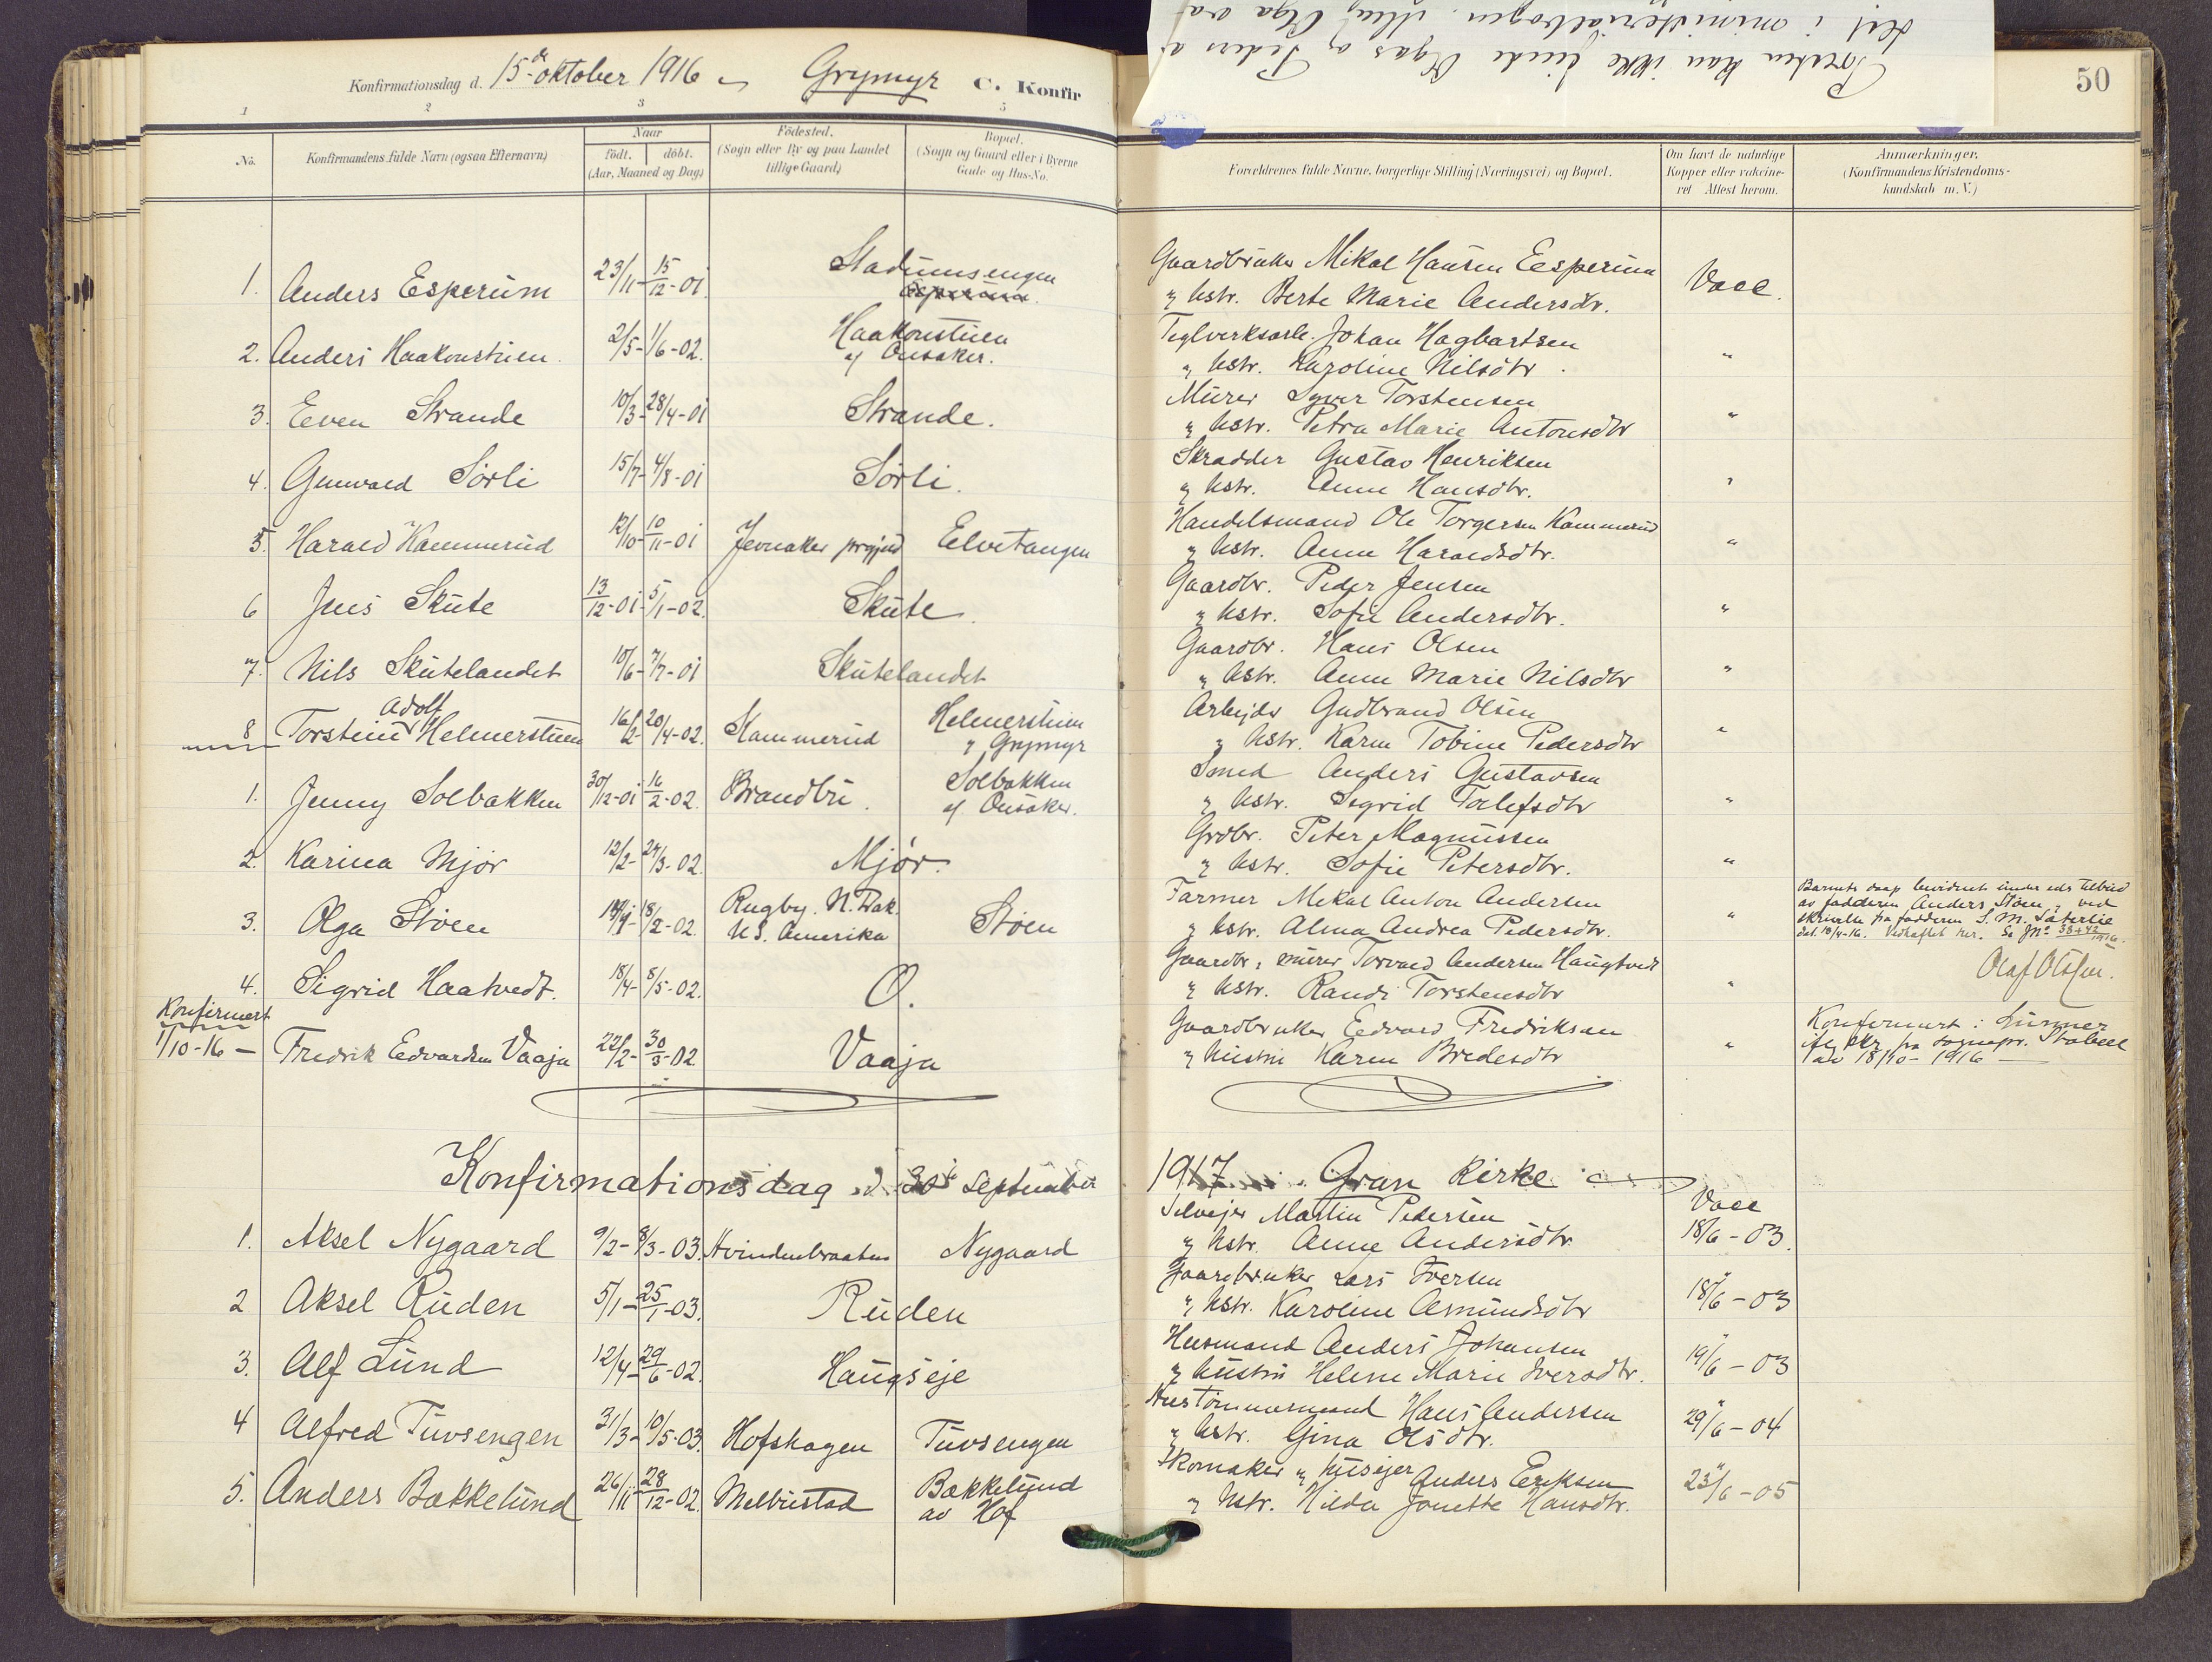 Konfirmationsdag d. 15de oktober 1916 Grymyr C. Konfir
50
1 2 3 5
No.
Konfirmandens fulde Navn (ogsaa Efternavn)
Naar
födt. döbt.
(Aar, Maaned og Dag)
Födested.
(Sogn eller By og paa Landet
tillige Gaard)
Bopæl.
(Sogn og Gaard eller i Byerne
Gade og Hus-No.
Forældrenes fulde Navne, borgerlige Stilling (Næringsvei) og Bopæl.
Om havt de naturlige
Kopper eller vakcine-
ret Attest herom.
Anmærkninger.
(Konfirmandens Kristendoms-
kundskab m. V.)
Presten kan ikke finde Olgas og Peders
det i ministerialbogen. Olga
1. Anders Esperum 23/11 - 15/12 - 01. Stadumsengen
Gaardbruker Mikal Hansen Eesperum
" hstr. Berte Marie Andersdtr. Vacc.
2. Anders Haakonstuen 2/5 - 1/6 - 02. Haakonstuen
af Onsaker.
Teglverksarb. Johan Hagbartsen
" hstr. Karoline Nilsdtr. "
3. Even Strande 10/3 - 28/4 - 01 Strande.
Murer Syver Torstensen
" hstr. Petra Marie Antonsdtr "
4. Gunvald Sörli 15/7 - 4/8 - 01 Sörli.
Skrædder Gustav Henriksen
" hstr. Anne Hansdtr. "
5. Harald Kammerud 12/10 - 10/11 - 01 Jevnaker prgjeld Elvetangen
Handelsmand Ole Torgersen Kammerud
" hstr. Anne Haraldsdtr. "
6 Jens Skute 13/12 - 01 - 5/1 - 02. Skute.
Gaardbr. Peder Jensen
" hstr. Sofie Andersdtr. "
7. Nils Skutelandet 10/6 - 7/7 - 01 Skutelandet
Gaardbr. Hans Olsen
" hstr. Anne Marie Nilsdtr "
8 Torstein Adolf Helmerstuen 16/2 - 20/4 - 02. Kammerud Helmerstuen
" Grymyr
Arbejder Gudbrand Olsen
" hstr. Karen Tobine Pedersdtr "
1. Jenny Solbakken 30/12 - 01 16/2 - 02. Brandbu. Solbakken
af Onsaker.
Smed Anders Gustavsen
" hstr. Sigrid Tolefsdtr "
2. Karina Mjör 12/2 - 24/3 - 02. Mjör.
Grdbr. Peter Magnussen
" hstr. Sofie Petersdtr. "
3. Olga Stöen 18/2 - 02. Rugby. N. Dak. Stöen
U.S. Amerika
Farmer Mikal Anton Andersen
" hstr. Alma Andrea Pedersdtr. "
Barnets daap bevidnet under eds tilbud
av fadderen Anders Stöen, ved
skrivelse fra fadderen S. M. Säterlie
dat. 18/4-16. Vedhæftet her. Se JNo 38+42/1916.
Olaf Olssen.
4. Sigrid Haatvedt. 18/4 - 8/5 - 02. O.
Gaardbr, murer Torvald Andersen Haugtvedt
" hstr. Randi Torstensdtr "
Konfirmert
1/10-16 - Fredrik Edvardsen Vaaja 22/2 - 30/3 - 02. Vaaja
Gaardbruker Edvard Fredriksen
" hustru Karen Bredesdtr "
Konfirmert i Lunner
ifg skr fra sognepr. Stabell
av 18/10 - 1916 -
Konfirmationsdag d. 30te september 1917 i Gran Kirke
1. Aksel Nygaard 9/2 - 8/3 - 03. Hvindenbraaten Nygaard
Selvejer Martin Pedersen
" hstr. Anne Andersdtr Vacc 18/6 - 03.
2 Aksel Ruden 5/1 - 25/1 - 03. Ruden
Gaardbruker Lars Iversen
" hstr. Karoline Asmundsdtr 18/6 - 03
3. Alf Lund 12/4 - 29/6 - 02. Haugseje
Husmand Anders Johansen
" hustru Helene Marie Iversdtr. 19/6 - 03
4 Alfred Tuvsengen 31/3 - 10/5 - 03. Hofshagen Tuvsengen
Hustömmermand Hans Andersen
" hstr. Gina Olsdtr. 29/6 - 04
5. Anders Bakkelund 26/11 - 28/12 - 02. Melbustad Bakkelund
av Hof
Skomaker " husejer Anders Eriksen
" hstr. Hilda Jonette Hansdtr. 23/6 - 05